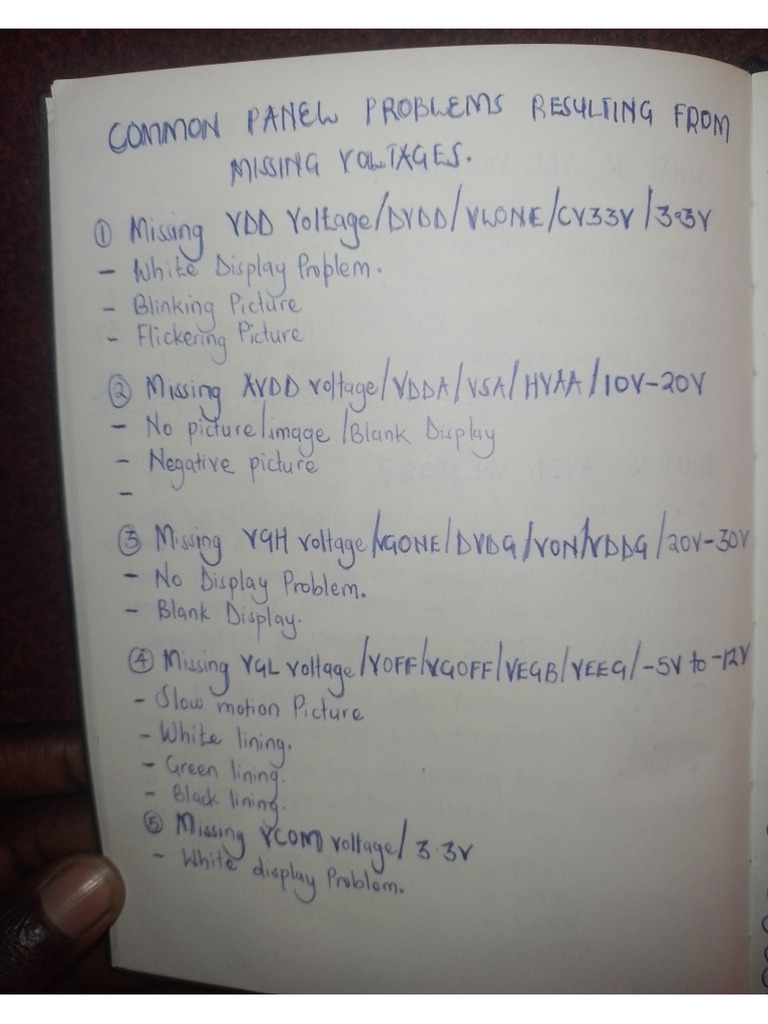 COMMON PANEL PROBLEMS RESULTING FROM
MISSING VOLTAGES.
① Missing VDD Voltage/DVDD/VLONE/CV33V/3.3V
- White Display Problem.
- Blinking Picture
- Flickering Picture
② Missing AVDD voltage/VDDA/VSA/HVAA/10V-20V
- No picture/image/Blank Display
- Negative picture
-
③ Missing VGH voltage/VGONE/DVDG/VON/VDDG/20V-30V
- No Display Problem.
- Blank Display.
④ Missing VGL voltage/VOFF/VGOFF/VEGB/VEEG/-5V to -12V
- Slow motion Picture
- White lining.
- Green lining.
- Black lining.
⑤ Missing VCOM voltage/3.3V
- White display Problem.